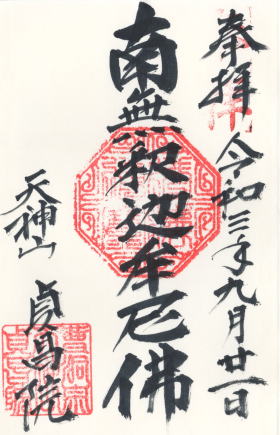 奉拝 令和三年九月廿一日
南無釈迦牟尼佛
天神山
貞昌院